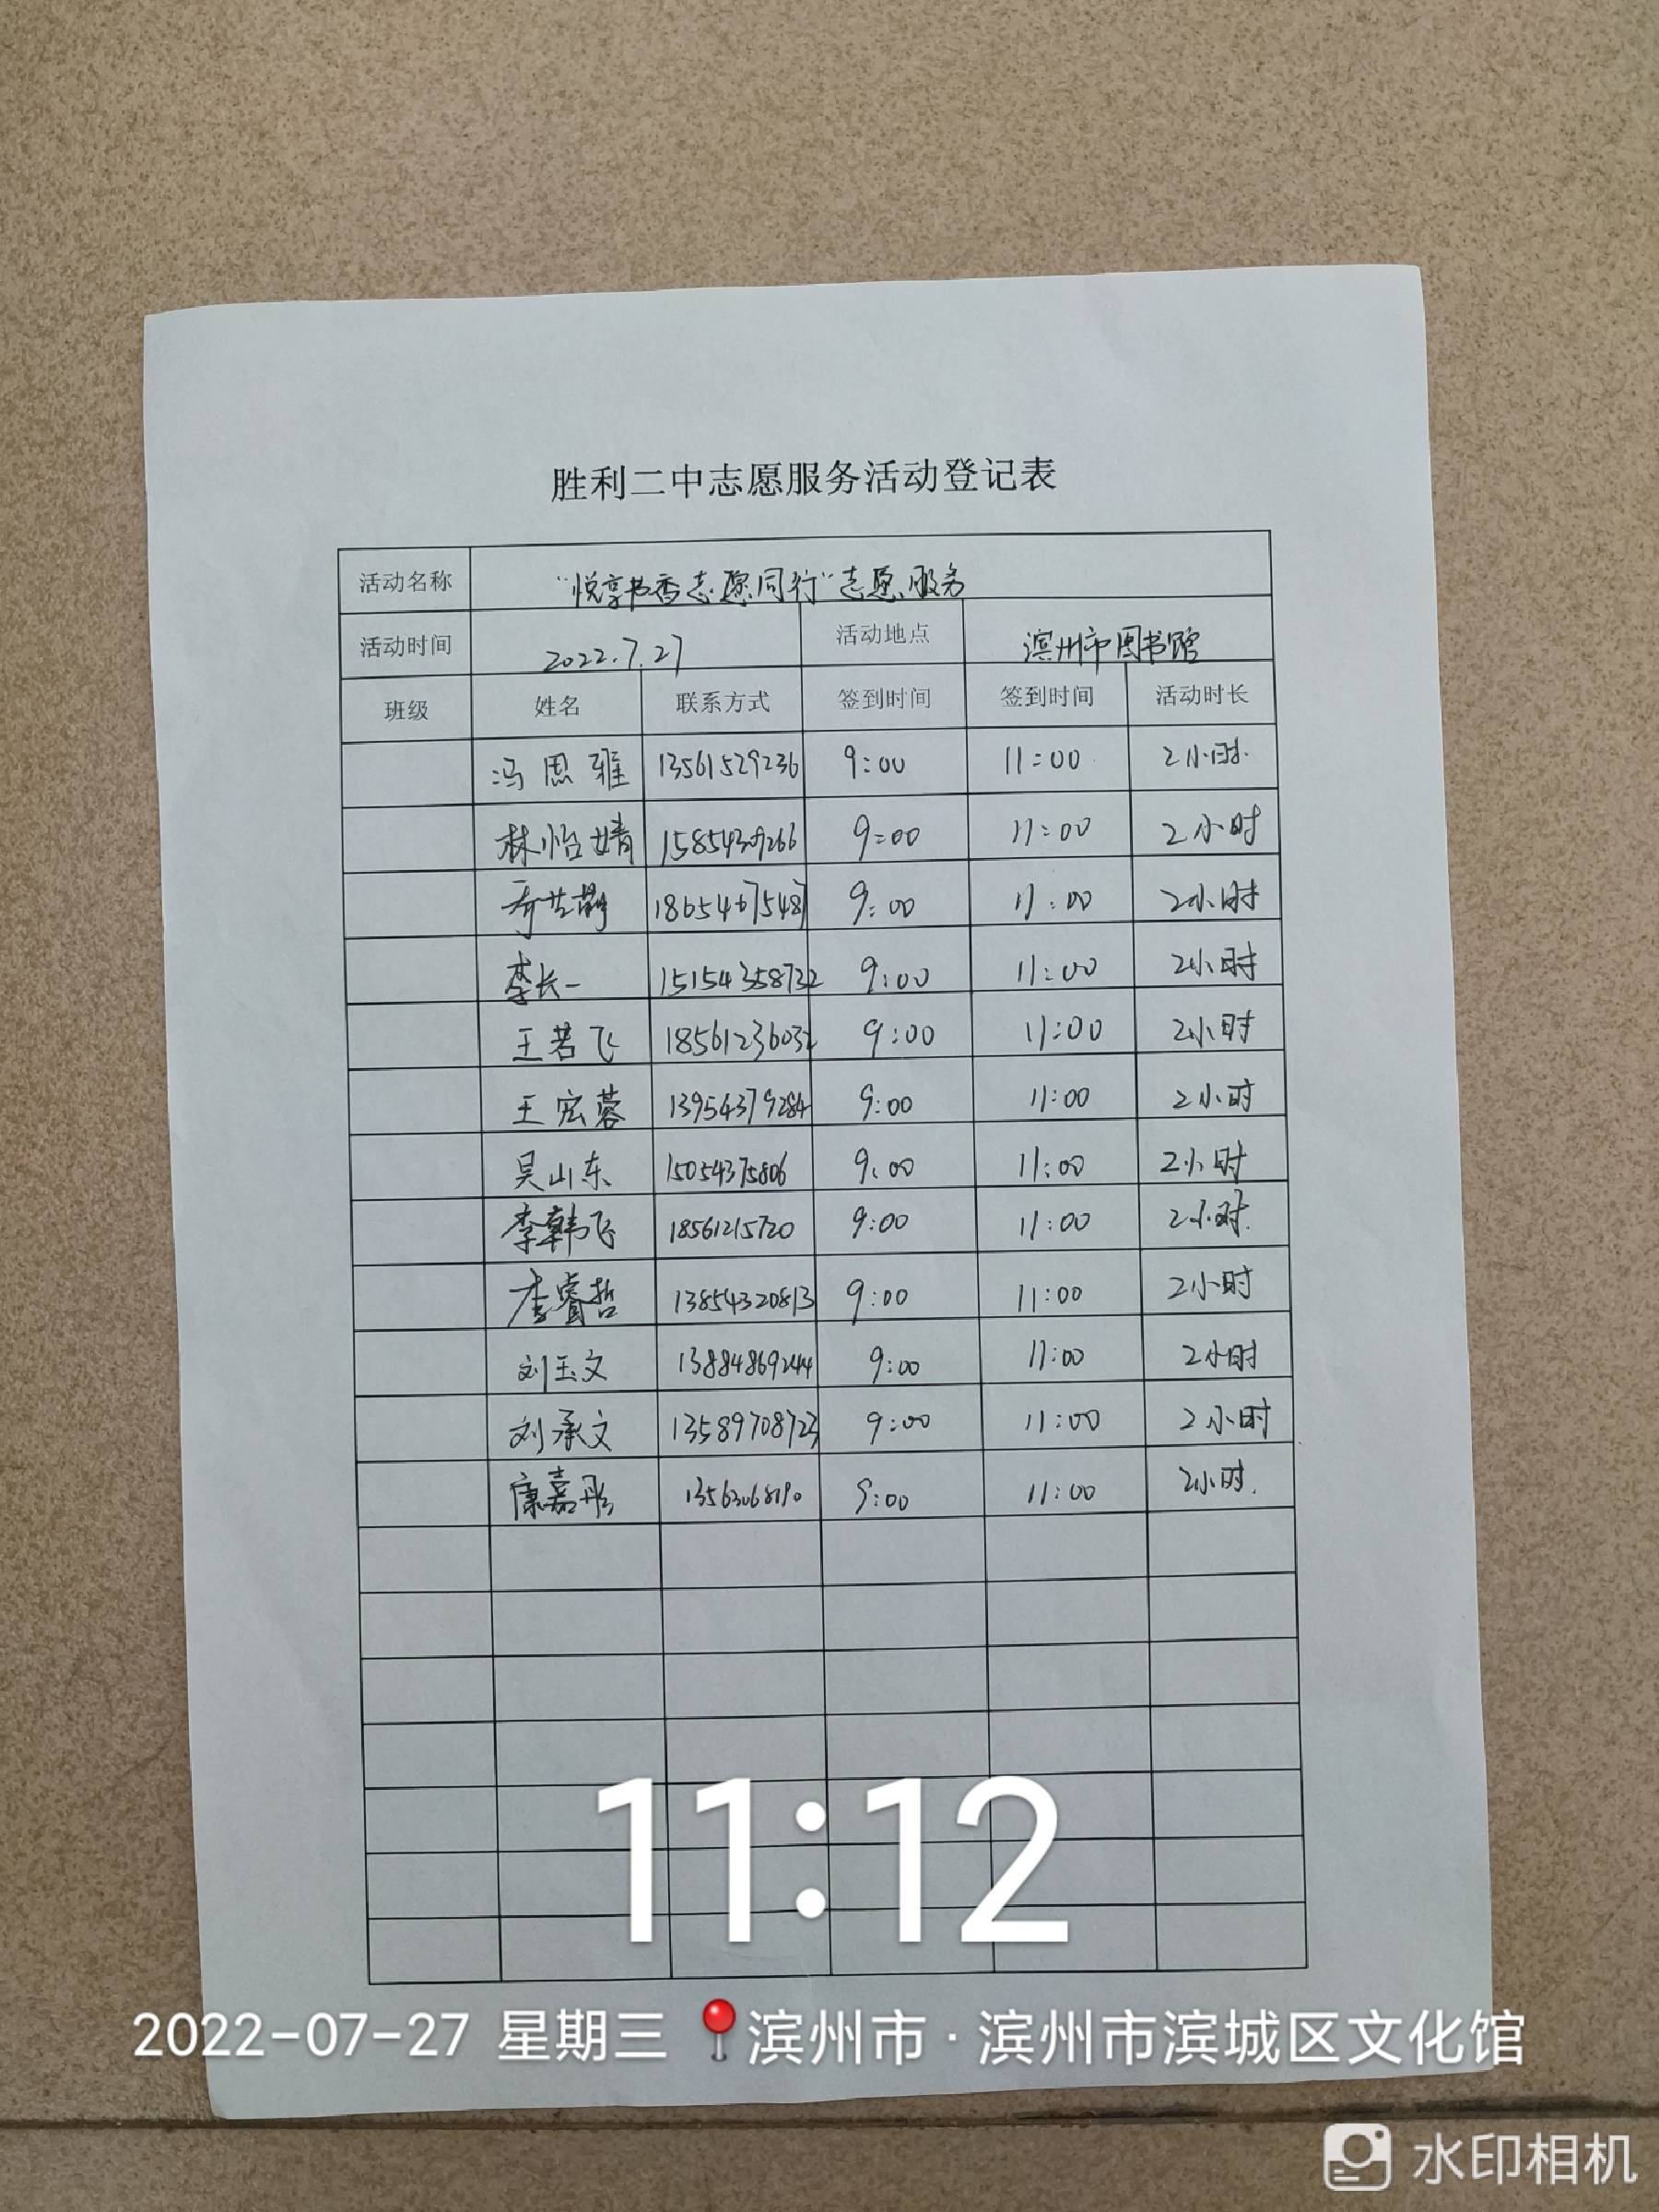 胜利二中志愿服务活动登记表
活动名称 “悦享书香志愿同行”志愿服务
活动时间 2022.7.27 活动地点 滨州市图书馆
班级 姓名 联系方式 签到时间 签到时间 活动时长
冯思雅 13561529236 9:00 11:00 2小时
林怡婧 15854309266 9:00 11:00 2小时
18654675487 9:00 11:00 2小时
李长一 15154358732 9:00 11:00 2小时
王若飞 18561236032 9:00 11:00 2小时
王宏蓉 13954379284 9:00 11:00 2小时
吴山东 15054375806 9:00 11:00 2小时
李韩飞 18561215720 9:00 11:00 2小时
李睿哲 13854320813 9:00 11:00 2小时
刘玉文 13884869244 9:00 11:00 2小时
刘承文 13589708723 9:00 11:00 2小时
康嘉彤 13563068190 9:00 11:00 2小时
11:12
2022-07-27 星期三 滨州市·滨州市滨城区文化馆
水印相机